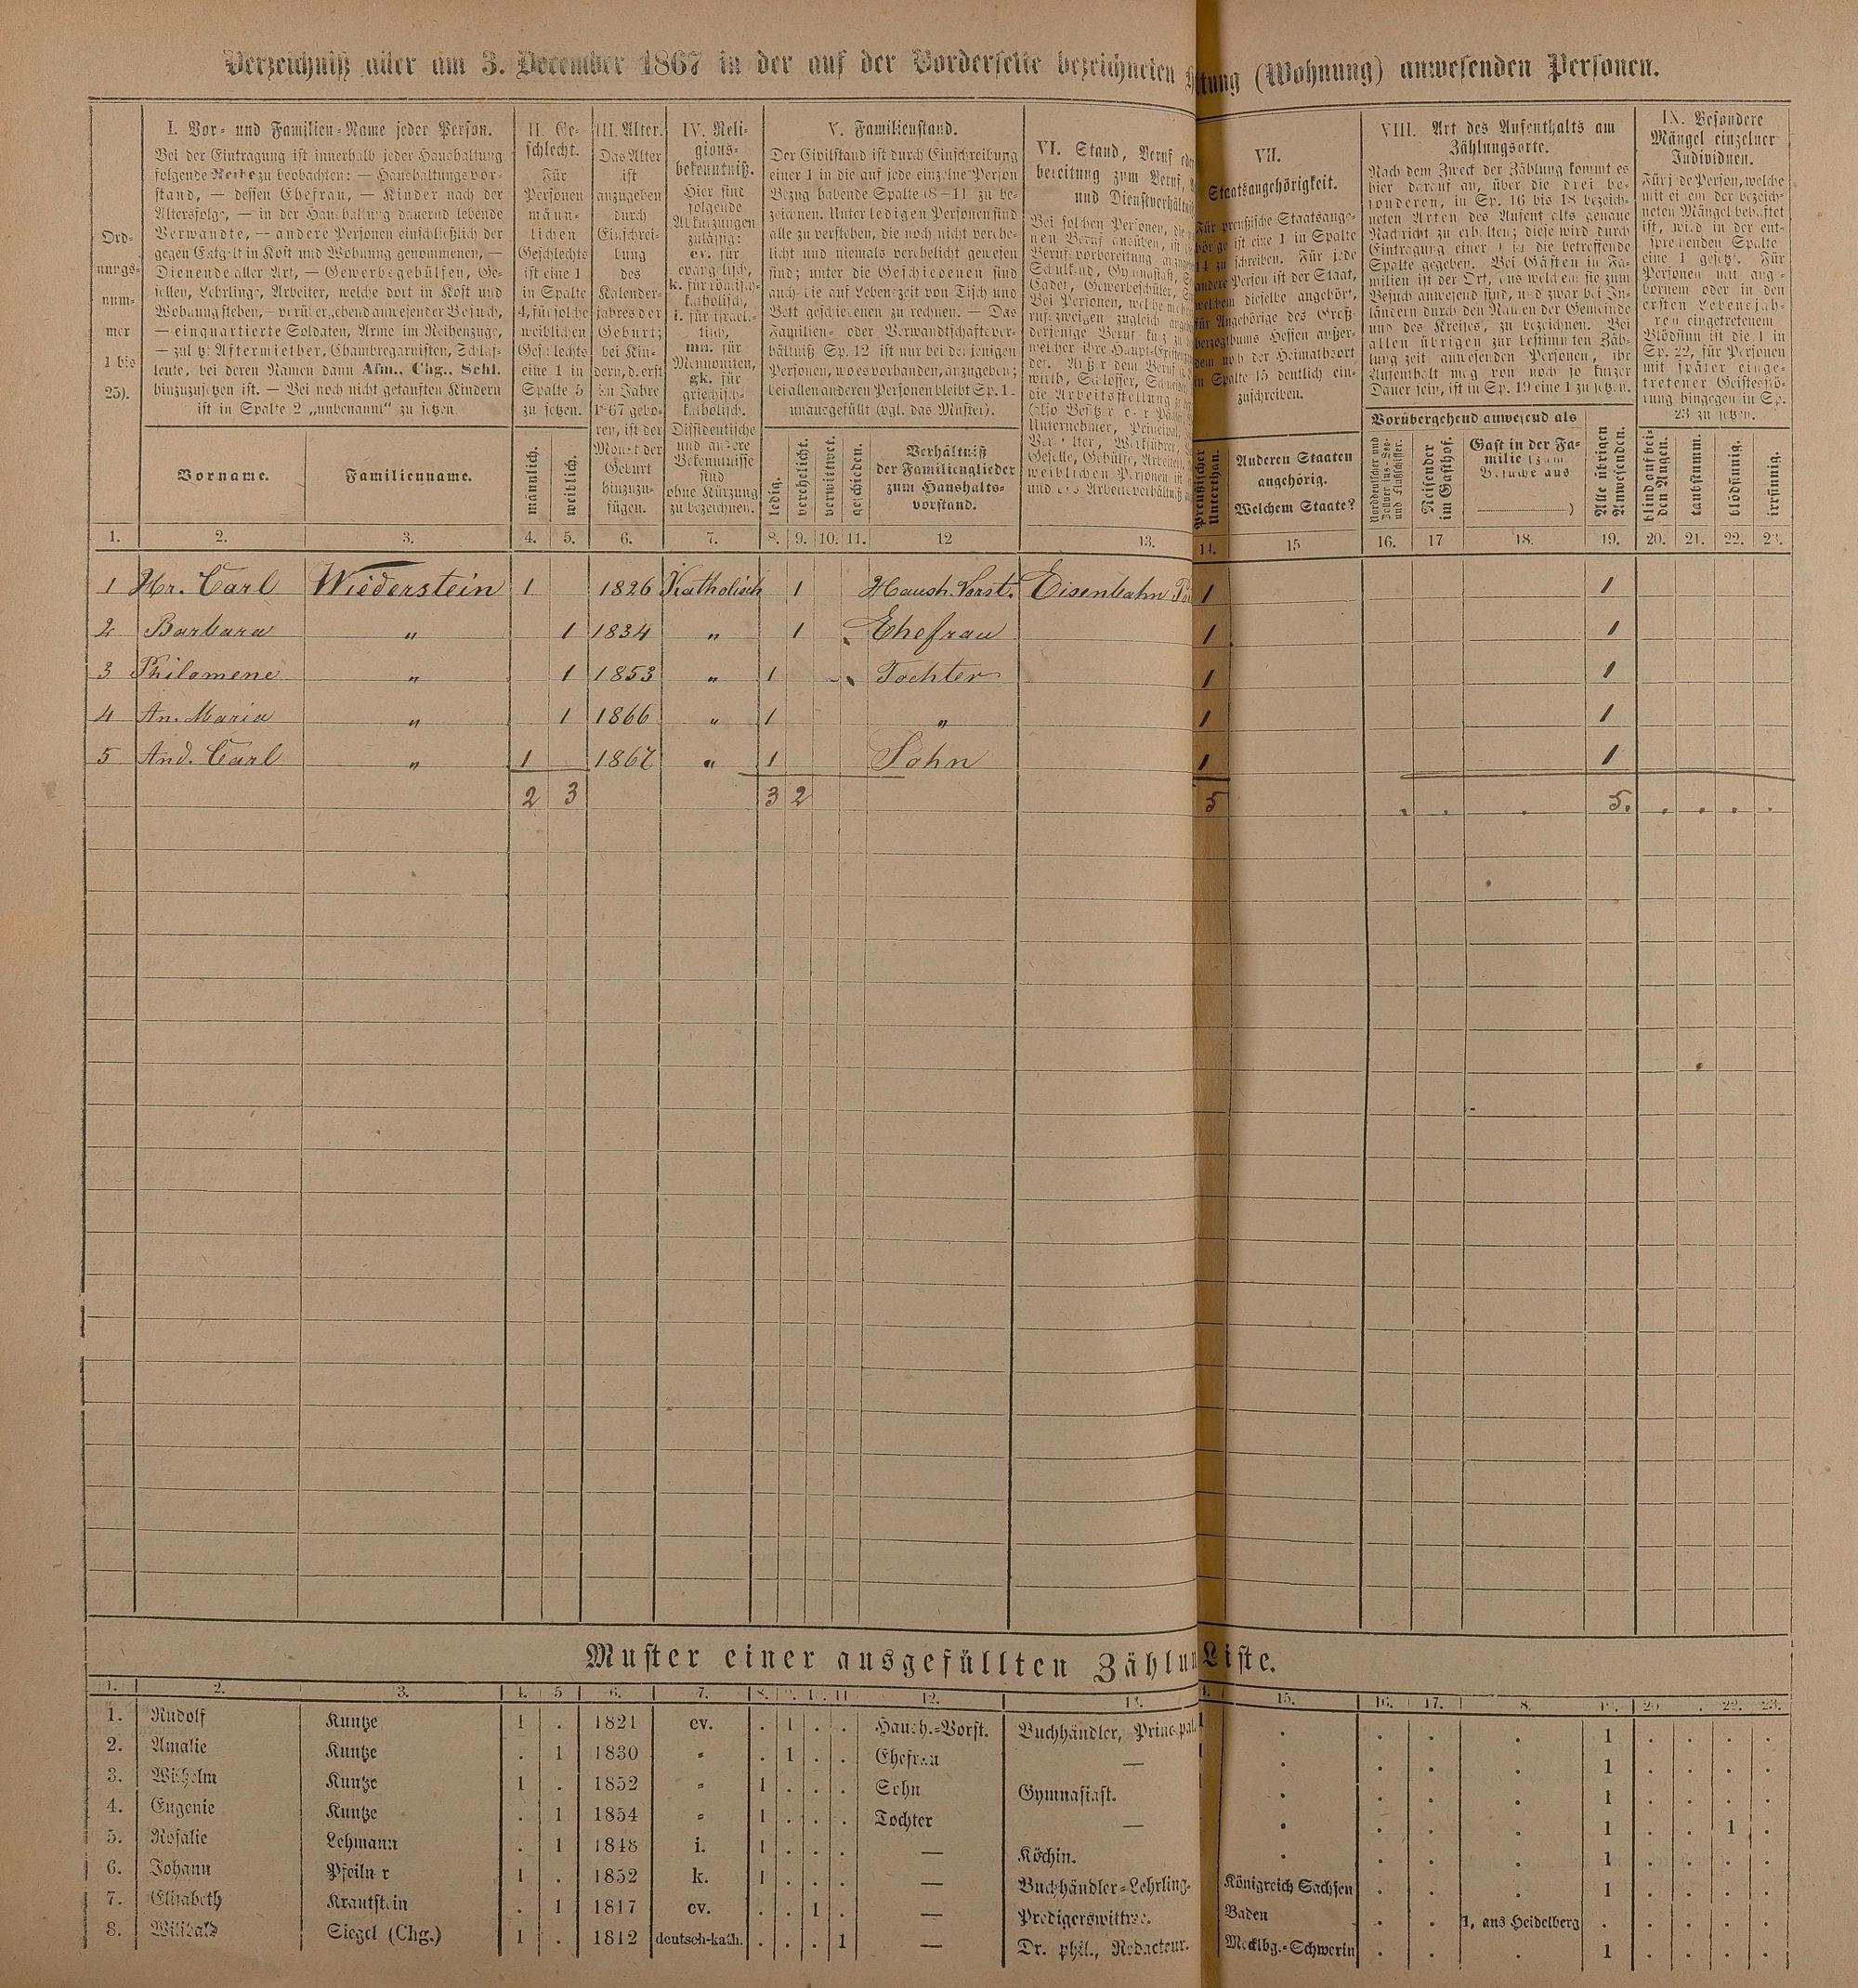 Verzeichniß aller am 3. December 1867 in der auf der Vorderseite bezeichneten
tung (Wohnung) anwesenden Personen.
Ord-
nungs-
num-
mer
1 bis
25).
I. Vor- und Familien-Name jeder Person.
Bei der Eintragung ist innerhalb jeder Haushaltung
folgende Reihe zu beobachten: — Haushaltungsvor-
stand, — dessen Ehefrau, — Kinder nach der
Altersfolge, — in der Haushaltung dauernd lebende
Verwandte, — andere Personen einschließlich der
gegen Entgelt in Kost und Wohnung genommenen, —
Dienende aller Art, — Gewerbsgehülfen, Ge-
sellen, Lehrlinge, Arbeiter, welche dort in Kost und
Wohnung stehen, — vorübergehend anwesender Besuch,
— einquartierte Soldaten, Arme im Reihenzuge,
— zuletzt Aftermiether, Chambregarnisten, Schlaf-
leute, bei deren Namen dann Afm., Chg., Schl.
hinzuzusetzen ist. — Bei noch nicht getauften Kindern
ist in Spalte 2 „unbenannt“ zu setzen.
Vorname.
Familienname.
II. Ge-
schlecht.
Für
Personen
männ-
lichen
Geschlechts
ist eine 1
in Spalte
4, für solche
weiblichen
Geschlechts
eine 1 in
Spalte 5
zu setzen.
männlich.
weiblich.
III. Alter.
Das Alter
ist
anzugeben
durch
Einschrei-
bung
des
Kalender-
jahres der
Geburt;
bei Kin-
dern, d. erst
im Jahre
1867 gebo-
ren, ist der
Monat der
Geburt
hinzuzu-
fügen.
IV. Reli-
gions-
bekenntniß.
Hier sind
folgende
Abkürzungen
zulässig:
ev. für
evangelisch,
k. für römisch-
katholisch,
i. für israeli-
tisch,
mn. für
Mennoniten,
gk. für
griechisch-
katholisch.
Dissidentische
und andere
Bekenntnisse
sind
ohne Kürzung
zu bezeichnen.
V. Familienstand.
Der Civilstand ist durch Einschreibung
einer 1 in die auf jede einzelne Person
Bezug habende Spalte (8—11) zu be-
zeichnen. Unter ledigen Personen sind
alle zu verstehen, die noch nicht verehe-
licht und niemals verehelicht gewesen
sind; unter die Geschiedenen sind
auch die auf Lebenszeit von Tisch und
Bett geschiedenen zu rechnen. — Das
Familien- oder Verwandtschaftsver-
hältniß Sp. 12 ist nur bei denjenigen
Personen, wo es vorhanden, anzugeben;
bei allen anderen Personen bleibt Sp. 1
unausgefüllt (vgl. das Muster).
ledig.
verehelicht.
verwittwet.
geschieden.
Verhältniß
der Familienglieder
zum Haushalts-
vorstand.
VI. Stand, Beruf
bereitung zum Beruf,
und Dienstverhältn
VII.
Staatsangehörigkeit.
Für preußische Staatsange-
hörige ist eine 1 in Spalte
14 zu schreiben. Für jede
andere Person ist der Staat,
welchem dieselbe angehört,
für Angehörige des Groß-
herzogthums Hessen außer-
dem noch der Heimathsort
in Spalte 15 deutlich ein-
zuschreiben.
Preußischer
Unterthan.
Anderen Staaten
angehörig.
Welchem Staate?
VIII. Art des Aufenthalts am
Zählungsorte.
Nach dem Zweck der Zählung kommt es
hier darauf an, über die drei be-
sonderen, in Sp. 16 bis 18 bezeich-
neten Arten des Aufenthalts genaue
Nachricht zu erhalten; diese wird durch
Eintragung einer 1 in die betreffende
Spalte gegeben. Bei Gästen in Fa-
milien ist der Ort, aus welchem sie zum
Besuch anwesend sind, und zwar bei In-
ländern durch den Namen der Gemeinde
und des Kreises, zu bezeichnen. Bei
allen übrigen zur bestimmten Zäh-
lungszeit anwesenden Personen, ihr
Aufenthalt mag von noch so kurzer
Dauer sein, ist in Sp. 19 eine 1 zu setzen.
Vorübergehend anwesend als
Reisender
im Gasthof.
Gast in der Fa-
milie (zum
Besuche aus
)
Alle übrigen
Anwesenden.
IX. Besondere
Mängel einzelner
Individuen.
Für jede Person, welche
mit einem der bezeich-
neten Mängel behaftet
ist, wird in der ent-
sprechenden Spalte
eine 1 gesetzt. Für
Personen mit ange-
bornem oder in den
ersten Lebensjah-
ren eingetretenem
Blödsinn ist die 1 in
Sp. 22, für Personen
mit später einge-
tretener Geistesstö-
rung hingegen in Sp.
23 zu setzen.
blind auf bei-
den Augen.
taubstumm.
blödsinnig.
irrsinnig.
1. 2. 3. 4. 5. 6. 7. 8. 9. 10. 11. 12 13. 14. 15 16. 17 18. 19. 20. 21. 22. 23.
1 Hr. Carl Wiederstein 1 1826 Katholisch 1 Haush. Vorst. Eisenbahn 1 1
2 Barbara " 1 1834 " 1 Ehefrau 1 1
3 Philomene " 1 1853 " 1 Tochter 1 1
4 An. Maria " 1 1866 " 1 " 1 1
5 And. Carl " 1 1867 " 1 Sohn 1 1
2 3 3 2 5 . . . 5. . . . .
Muster einer ausgefüllten Zählun
Liste.
1. 2. 3. 4. 5 6. 7. 8. 9. 10. 11 12. 13. 15. 16. 17. 8. 19. 20 . 22. 23.
1. Rudolf Kuntze 1 . 1821 ev. . 1 . . Haush.-Vorst. Buchhändler, Principal. 1 . . . . 1 . . . .
2. Amalie Kuntze . 1 1830 " . 1 . . Ehefrau — . . . . 1 . . . .
3. Wilhelm Kuntze 1 . 1852 " 1 . . . Sohn Gymnasiast. . . . . 1 . . . .
4. Eugenie Kuntze . 1 1854 " 1 . . . Tochter — . . . . 1 . . 1 .
5. Rosalie Lehmann . 1 1848 i. 1 . . . — Köchin. . . . . 1 . . . .
6. Johann Pfeilner 1 . 1852 k. 1 . . . — Buchhändler-Lehrling. Königreich Sachsen . . . 1 . . . .
7. Elisabeth Krautstein . 1 1817 ev. . . 1 . — Predigerswittwe. Baden . . 1, aus Heidelberg . . . . .
8. Wilibald Siegel (Chg.) 1 . 1812 deutsch-kath. . . . 1 — Dr. phil., Redacteur. Mecklbg.-Schwerin . . . 1 . . . .